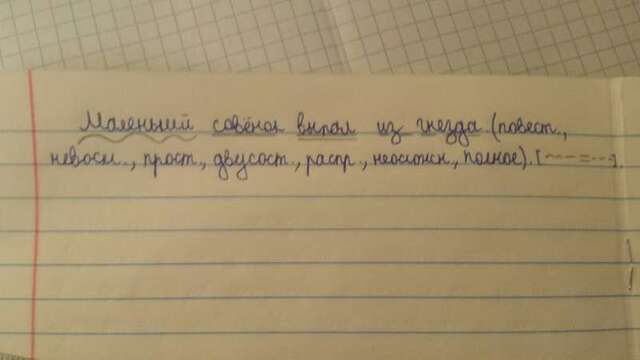 Маленький совёнок выпал из гнезда.(повест.,
невоскл., прост., двусост., распр., неосложн., полное).[~~~ - = -·-·].